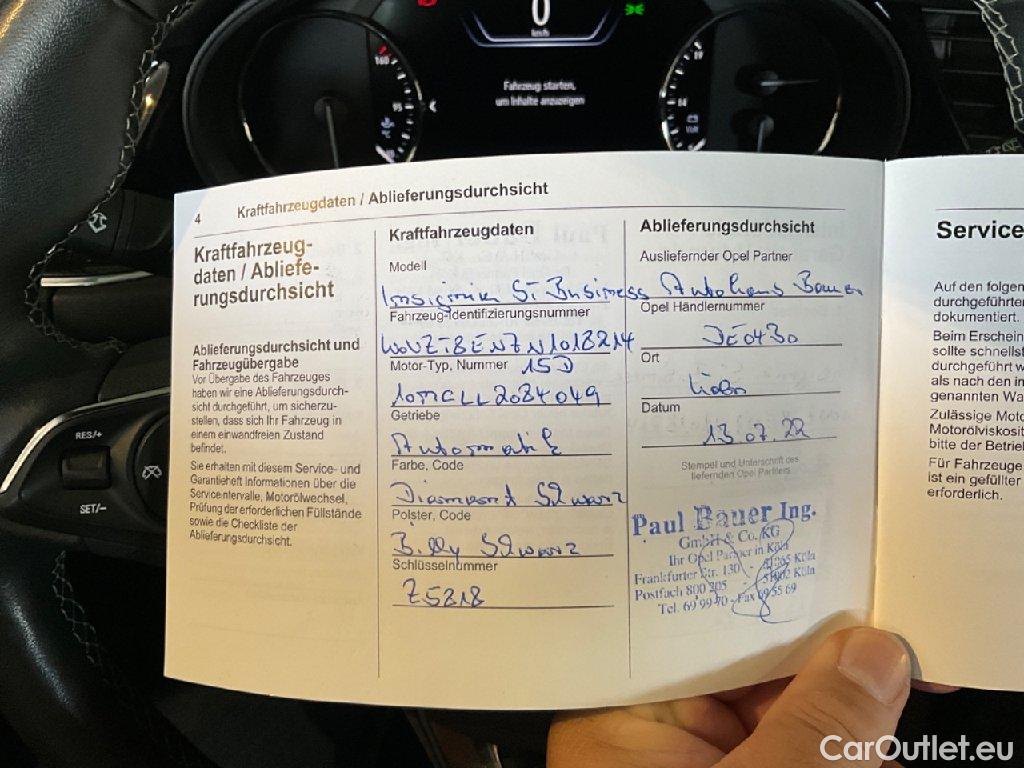 0
km/h
160
95
Fahrzeug starten,
um Inhalte anzuzeigen
19
14
RES/+
SET/–
4 Kraftfahrzeugdaten / Ablieferungsdurchsicht
Kraftfahrzeug-
daten / Abliefe-
rungsdurchsicht
Ablieferungsdurchsicht und
Fahrzeugübergabe
Vor Übergabe des Fahrzeuges
haben wir eine Ablieferungsdurch-
sicht durchgeführt, um sicherzu-
stellen, dass sich Ihr Fahrzeug in
einem einwandfreien Zustand
befindet.
Sie erhalten mit diesem Service- und
Garantieheft Informationen über die
Serviceintervalle, Motorölwechsel,
Prüfung der erforderlichen Füllstände
sowie die Checkliste der
Ablieferungsdurchsicht.
Kraftfahrzeugdaten
Modell
Insignia ST Business
Fahrzeug-Identifizierungsnummer
W0VZT8ENZN1018214
Motor-Typ, Nummer 15D
Getriebe
Automatik
Farbe, Code
Diamant Schwarz
Polster, Code
Billy Schwarz
Schlüsselnummer
Z5818
Ablieferungsdurchsicht
Ausliefernder Opel Partner
Autohaus Bauer
Opel Händlernummer
DE0430
Ort
Köln
Datum
13.07.22
Stempel und Unterschrift des
liefernden Opel Partners
Paul Bauer Ing.
GmbH & Co. KG
Ihr Opel Partner in Köln
Frankfurter Str. 130 - 51065 Köln
Postfach 800 205 - 51002 Köln
Tel. 69 99 70 - Fax 69 55 69
Service
Auf den folgen
durchgeführten
dokumentiert.
Beim Erschein
sollte schnellst
durchgeführt w
als nach den in
genannten Wa
Zulässige Moto
Motorölviskosit
bitte der Betrieb
Für Fahrzeuge
ist ein gefüllter
erforderlich.
CarOutlet.eu